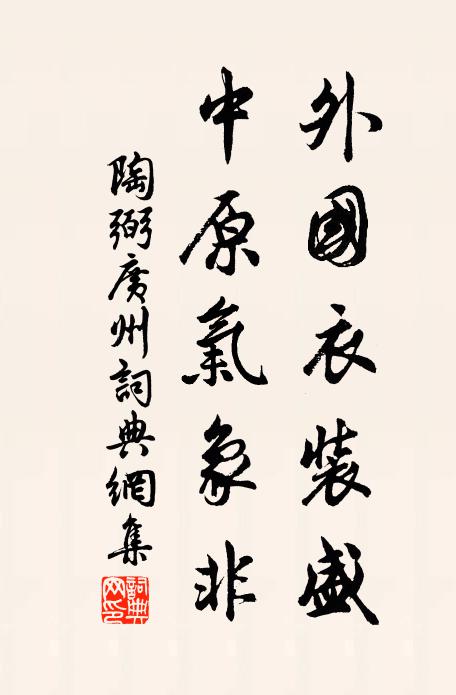 外國衣裝盛
中原氣象非
陶弼廣州詞典網集
詞典网印